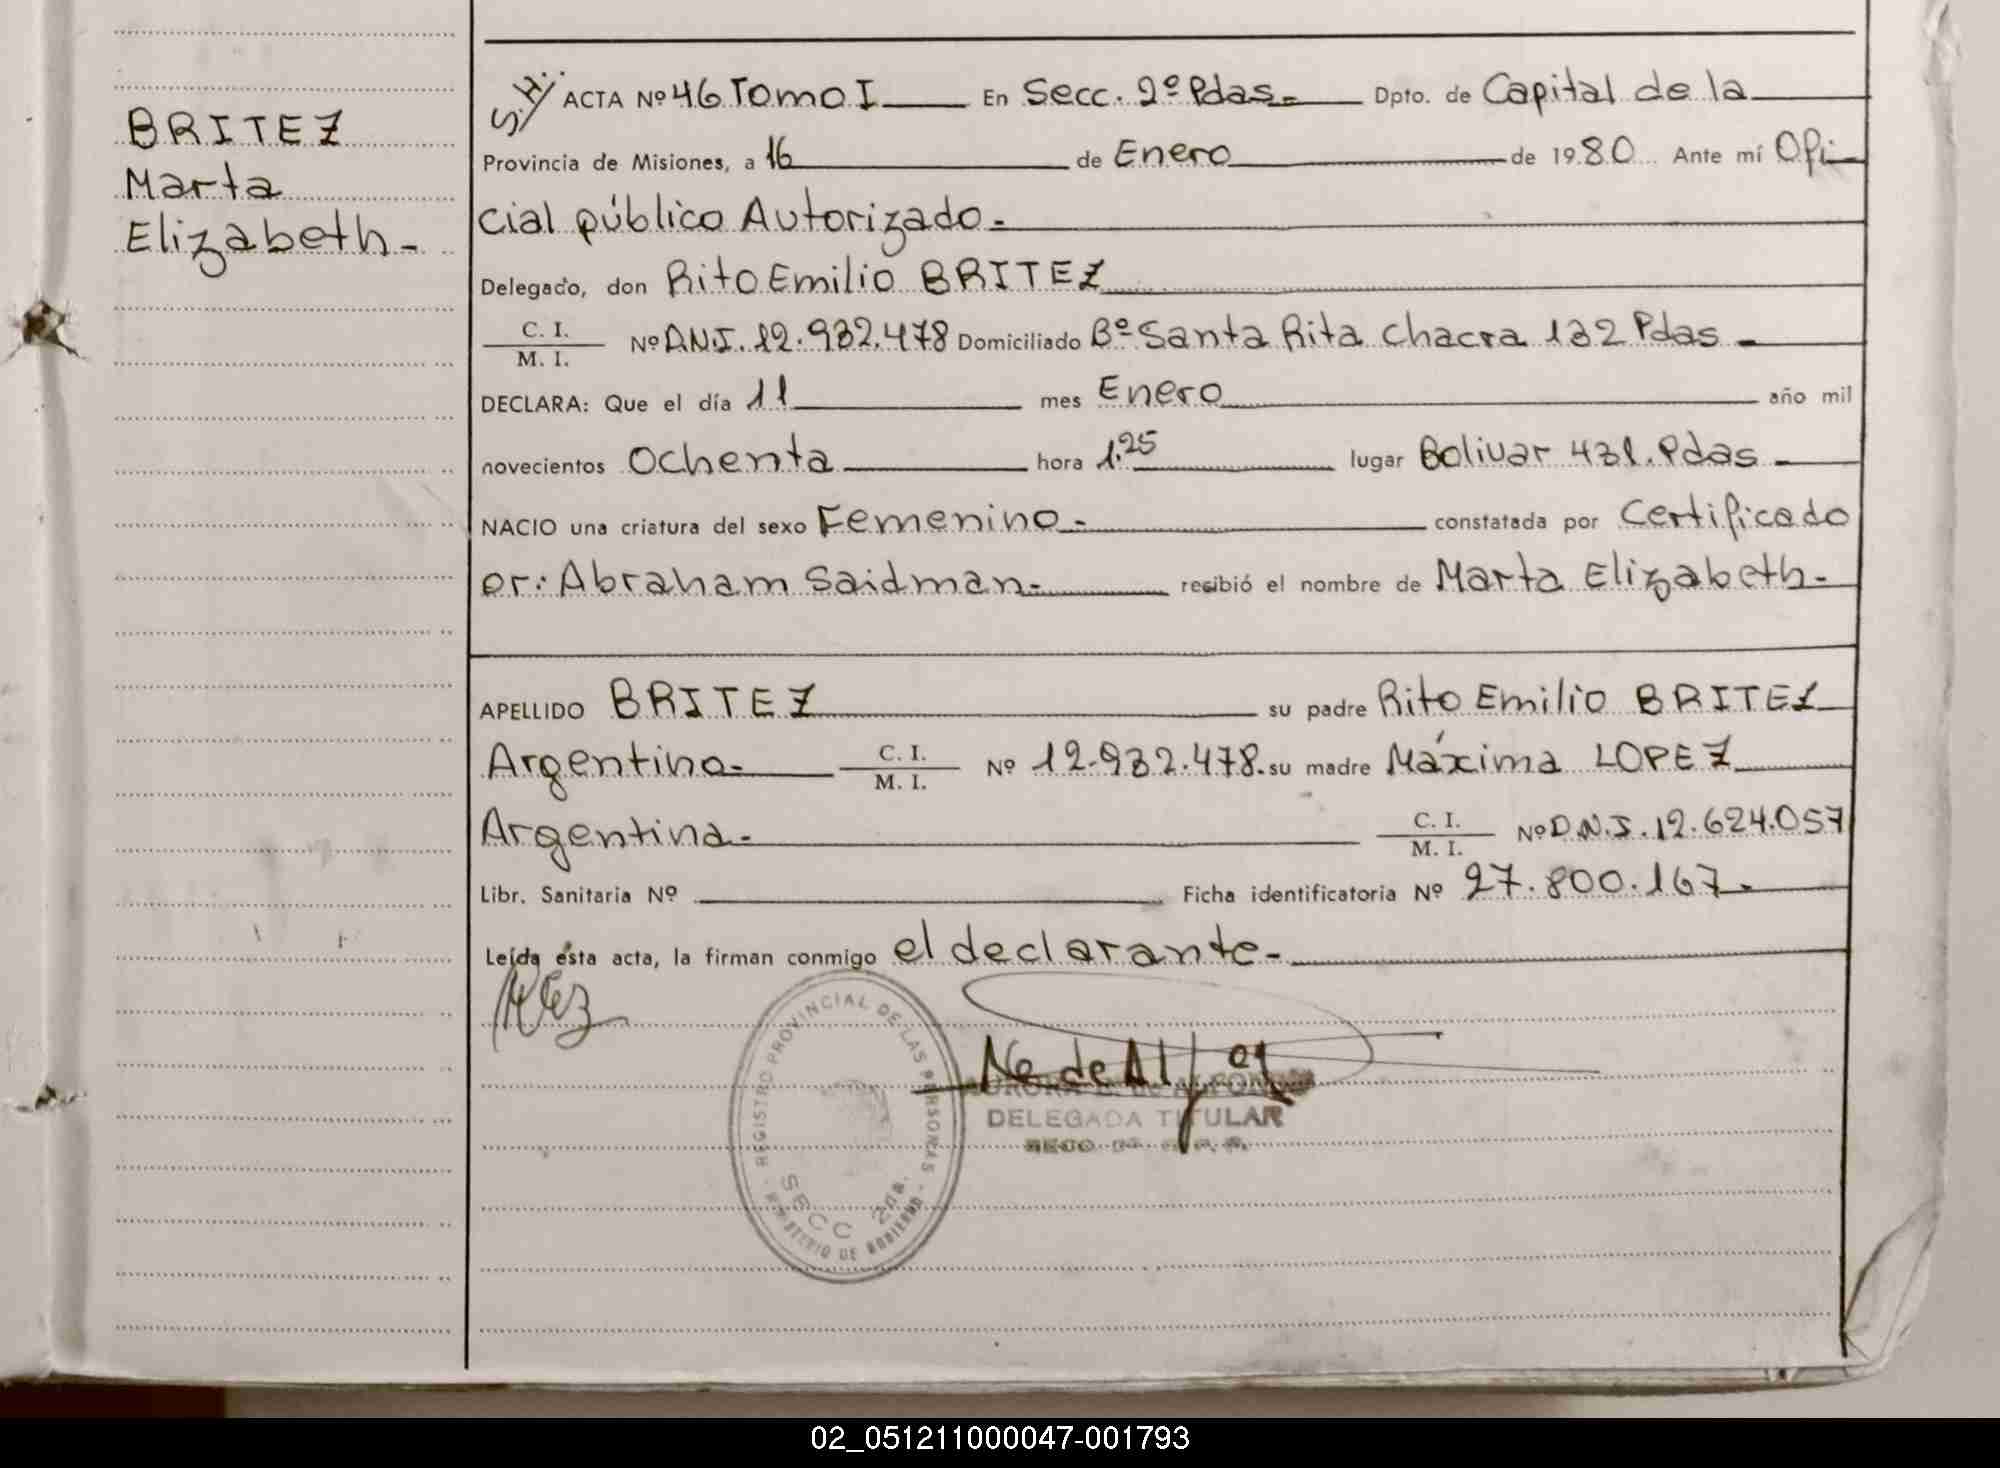 BRITEZ
Marta
Elizabeth-
S.H. ACTA Nº 46 Tomo I En Secc. 2º Pdas.- Dpto. de Capital de la
Provincia de Misiones, a 16 de Enero de 1980 Ante mí Ofi-
cial público Autorizado.-
Delegado, don Rito Emilio BRITEZ
C. I.
M. I.
Nº D.N.I. 12.932.478 Domiciliado Bº Santa Rita Chacra 132 Pdas.-
DECLARA: Que el día 11 mes Enero año mil
novecientos Ochenta hora 1.25 lugar Bolivar 431. Pdas.-
NACIO una criatura del sexo Femenino.- constatada por Certificado
Dr: Abraham Saidman.- recibió el nombre de Marta Elizabeth.-
APELLIDO BRITEZ su padre Rito Emilio BRITEZ
Argentino.- C. I. M. I. Nº 12.932.478. su madre Máxima LOPEZ
Argentina.- C. I. M. I. Nº D.N.I. 12.624.057
Libr. Sanitaria Nº Ficha identificatoria Nº 27.800.167.-
Leída ésta acta, la firman conmigo el declarante.-
REGISTRO PROVINCIAL DE LAS PERSONAS
SECC 2da.
MINISTERIO DE GOBIERNO
DELEGADA TITULAR
02_051211000047-001793